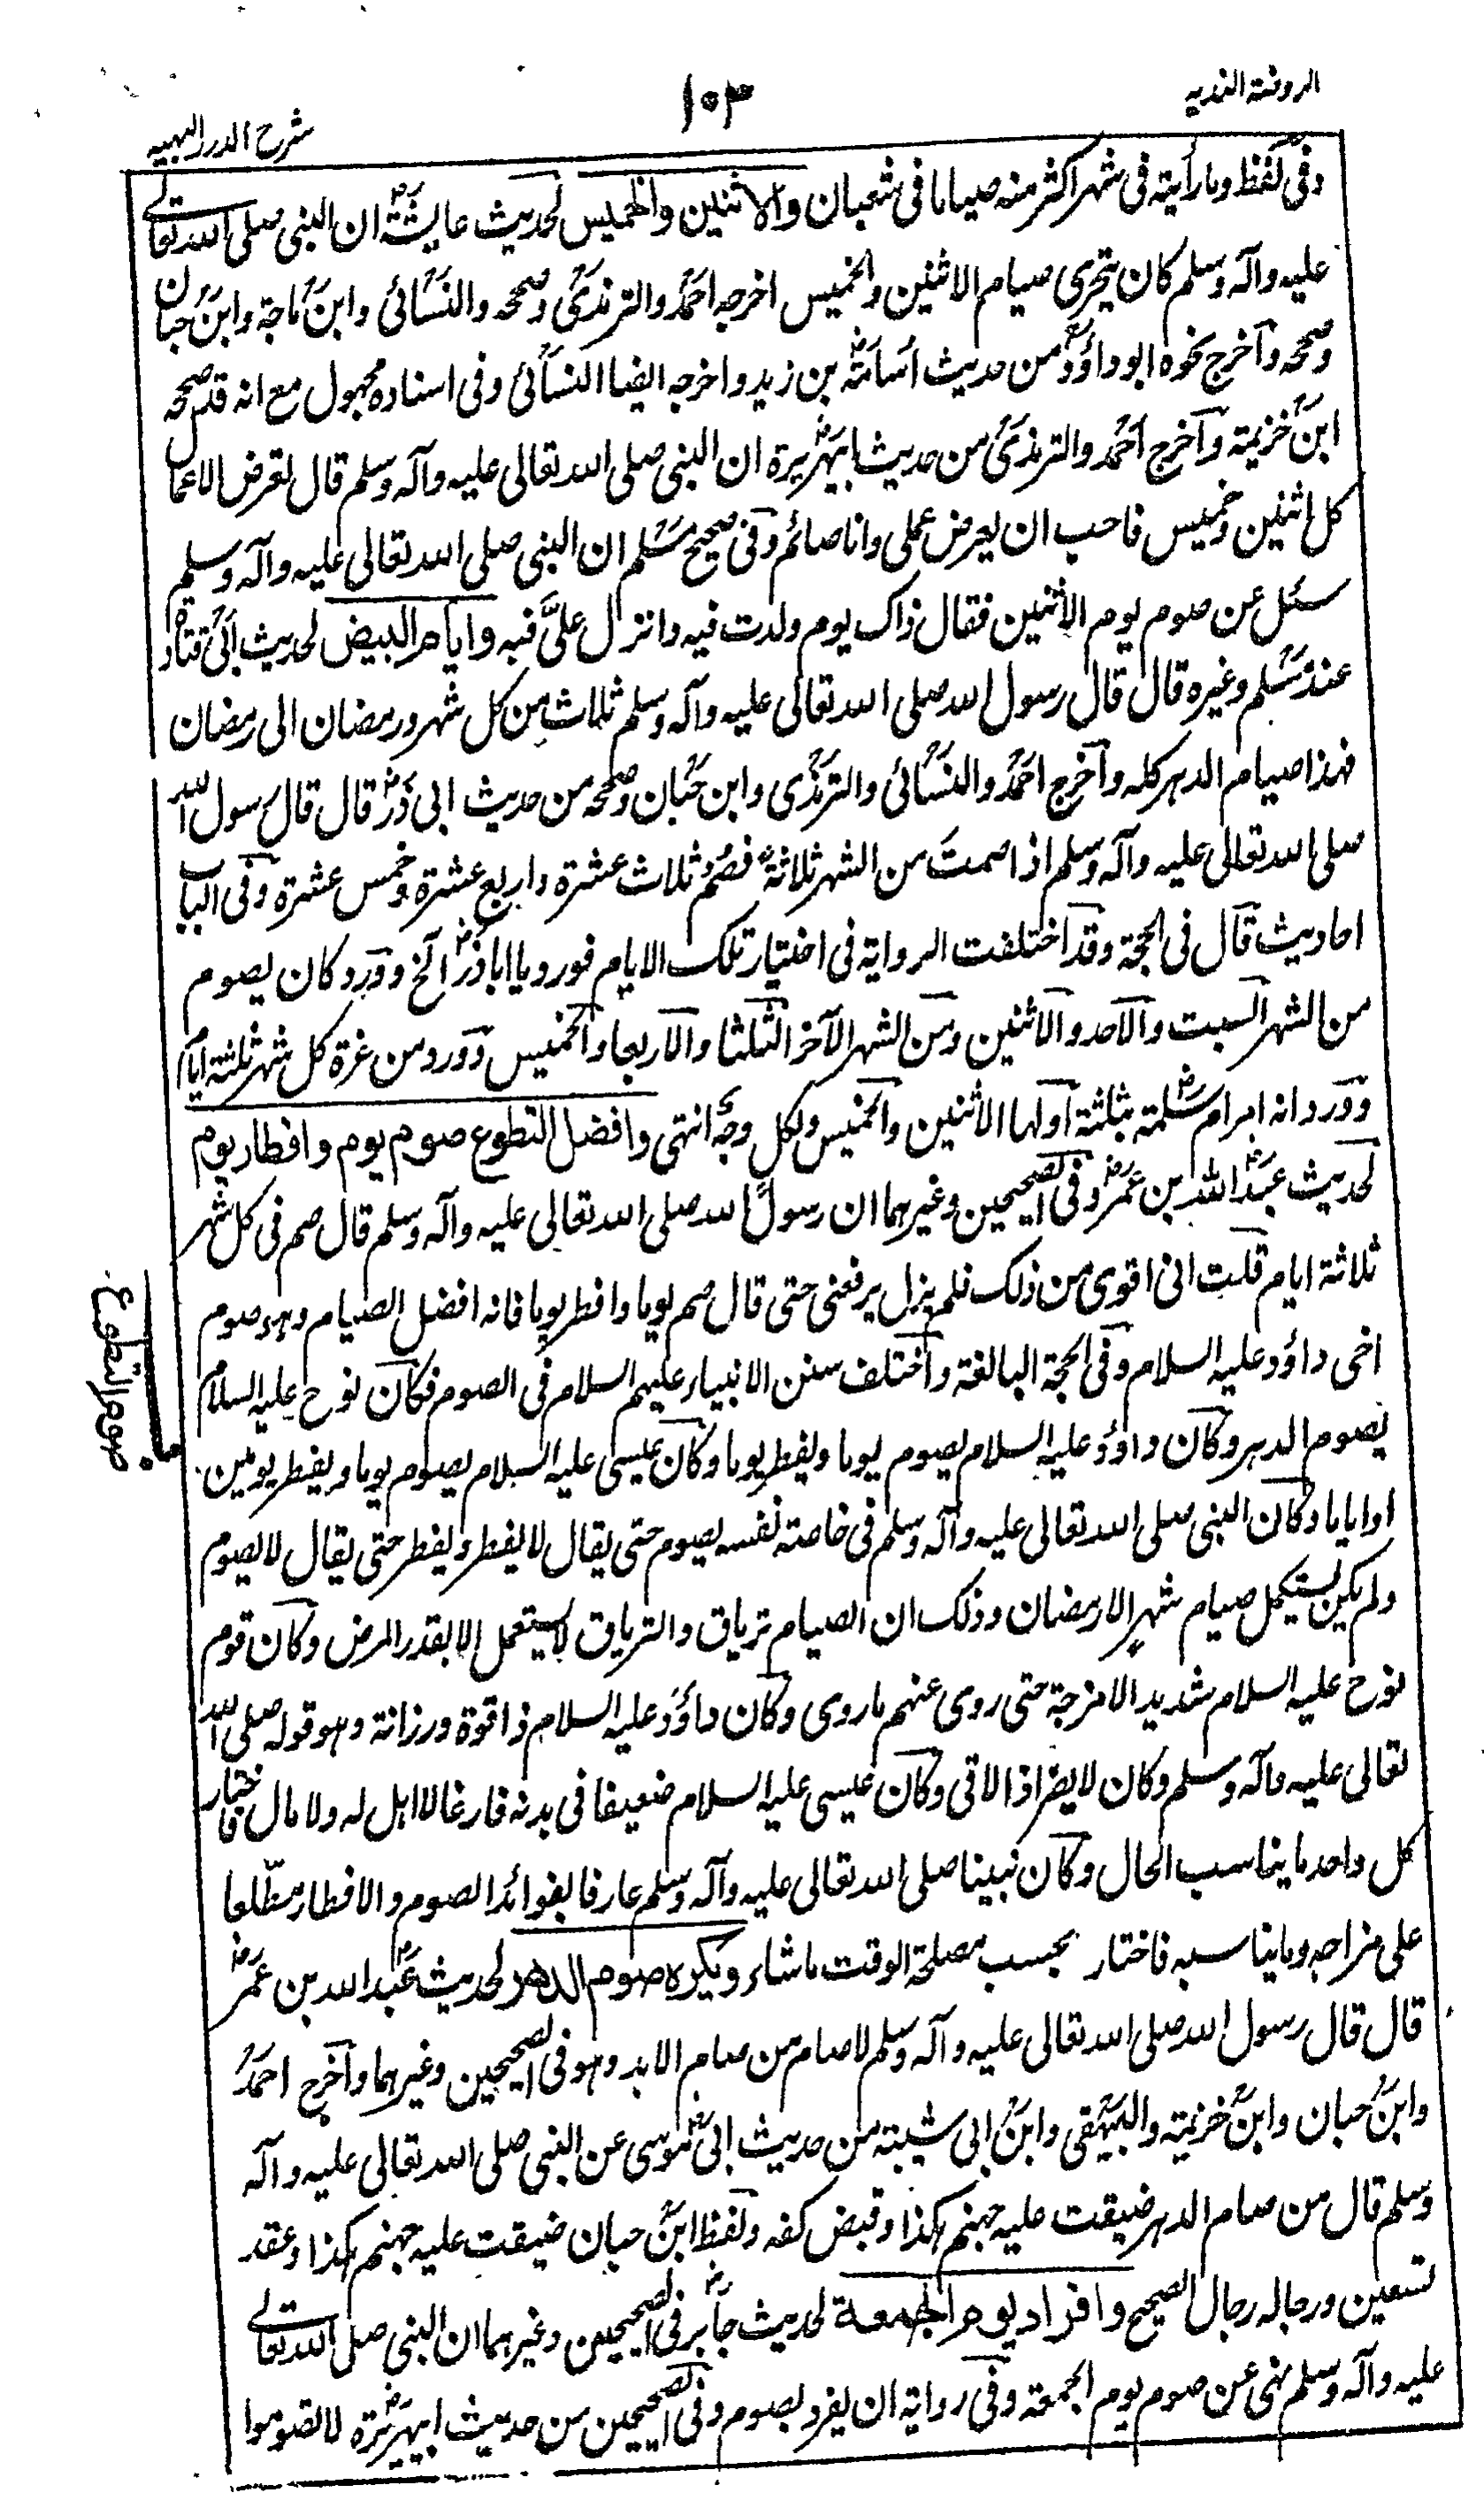 الروضة الندیه
۱۰۳
شرح الدرر البهیه
وفی لفظ وما رأیته فی شهر اکثر منه صیاما فی شعبان والاثنین والخمیس لحدیث عایشة رض ان النبی صلی الله تعالی
علیه وآله وسلم کان یتحری صیام الاثنین والخمیس اخرجه احمد والترمذی وصححه والنسائی وابن ماجة وابن حبان
وصححه وآخرج نحوه ابو داؤد من حدیث اسامة رض بن زید واخرجه ایضا النسائی وفی اسناده مجهول مع انه قد صححه
ابن خزیمة وآخرج احمد والترمذی من حدیث ابیهریرة رض ان النبی صلی الله تعالی علیه وآله وسلم قال تعرض الاعمال
کل اثنین وخمیس فاحب ان یعرض عملی وانا صائم وفی صحیح مسلم ان النبی صلی الله تعالی علیه وآله وسلم
سئل عن صوم یوم الاثنین فقال ذاک یوم ولدت فیه وانزل علیَّ فیه وایام البیض لحدیث ابی قتادة
عند مسلم وغیره قال قال رسول الله صلی الله تعالی علیه وآله وسلم ثلاث من کل شهر ورمضان الی رمضان
فهذا صیام الدهر کله وآخرج احمد والنسائی والترمذی وابن حبان وصححه من حدیث ابی ذر رض قال قال رسول الله
صلی الله تعالی علیه وآله وسلم اذا صمتَ من الشهر ثلاثةً فصُم ثلاث عشرة واربع عشرة وخمس عشرة وفی الباب
احادیث قال فی الحجة وقد اختلفت الروایة فی اختیار تلک الایام فورد یا ابا ذر رض الخ وورد کان یصوم
من الشهر السبت والاحد والاثنین ومن الشهر الآخر الثلثا والاربعا والخمیس وورد من غرة کل شهر ثلثة ایام
وورد انه امر ام سلمة رض بثلثة اولها الاثنین والخمیس ولکل وجه انتهی وافضل التطوع صوم یوم وافطار یوم
لحدیث عبد الله بن عمر رض وفی الصحیحین وغیرهما ان رسول الله صلی الله تعالی علیه وآله وسلم قال صم فی کل شهر
ثلاثة ایام قلت انی اقوی من ذلک فلم یزل یرفعنی حتی قال صم یوما وافطر یوما فانه افضل الصیام وهو صوم
اخی داؤد علیه السلام وفی الحجة البالغة واختلف سنن الانبیاء علیهم السلام فی الصوم فکان نوح علیه السلام
یصوم الدهر وکان داؤد علیه السلام یصوم یوما ویفطر یوما وکان عیسی علیه السلام یصوم یوما ویفطر یومین
او ایاما وکان النبی صلی الله تعالی علیه وآله وسلم فی خاصة نفسه یصوم حتی یقال لا یفطر ویفطر حتی یقال لا یصوم
ولم یکن یستکمل صیام شهرٍ الا رمضان وذلک ان الصیام تریاق والتریاق لا یستعمل الا بقدر المرض وکان قوم
نوح علیه السلام شدید الامزجة حتی روی عنهم ما روی وکان داؤد علیه السلام ذا قوة ورزانة وهو قوله صلی الله
تعالی علیه وآله وسلم وکان لا یفر اذا لاقی وکان عیسی علیه السلام ضعیفا فی بدنه فارغا لا اهل له ولا مال فاختار
کل واحد ما یناسب الحال وکان نبینا صلی الله تعالی علیه وآله وسلم عارفا بفوائد الصوم والافطار مطّلعا
علی مزاجه وما یناسبه فاختار بحسب مصلحة الوقت ما شاء ویکره صوم الدهر لحدیث عبد الله بن عمر رض
قال قال رسول الله صلی الله تعالی علیه وآله وسلم لا صام من صام الابد وهو فی الصحیحین وغیرهما وآخرج احمد
وابن حبان وابن خزیمة والبیهقی وابن ابی شیبة من حدیث ابی موسی رض عن النبی صلی الله تعالی علیه وآله
وسلم قال من صام الدهر ضیقت علیه جهنم هکذا وقبض کفه ولفظ ابن حبان ضیقت علیه جهنم هکذا وعقد
تسعین ورجاله رجال الصحیح وافراد یوم الجمعة لحدیث جابر رض فی الصحیحین وغیرهما ان النبی صلی الله تعالی
علیه وآله وسلم نهی عن صوم یوم الجمعة وفی روایة ان یفرد بصوم وفی الصحیحین من حدیث ابیهریرة رض لا تصوموا
صوم التطوع